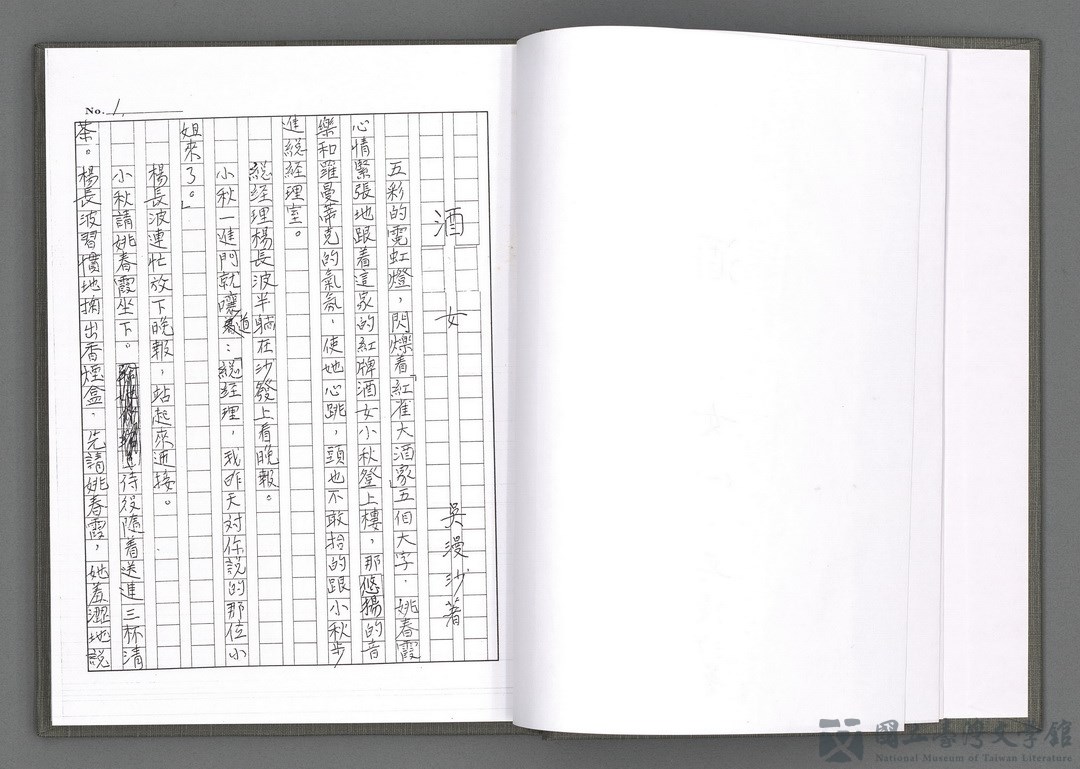 No. 1.
酒女
吳漫沙著
五彩的霓虹燈,閃爍着「紅雀大酒家」五個大字.姚春霞
心情緊張地跟着這家的紅牌酒女小秋登上樓,那悠揚的音
樂和羅曼蒂克的氣氛.使她心跳,頭也不敢抬的跟小秋步
進総経理室。
総経理楊長波半躺在沙發上看晚報。
小秋一進門就嚷道:「総経理,我昨天对你説的那位小
姐來了。」
楊長波連忙放下晚報,站起來迎接。
小秋請姚春霞坐下。侍役隨着送進三杯清
茶。楊長波習慣地掏出香煙盒.先請姚春霞,她羞澀地説
國立臺灣文學館
National Museum of Taiwan Literature